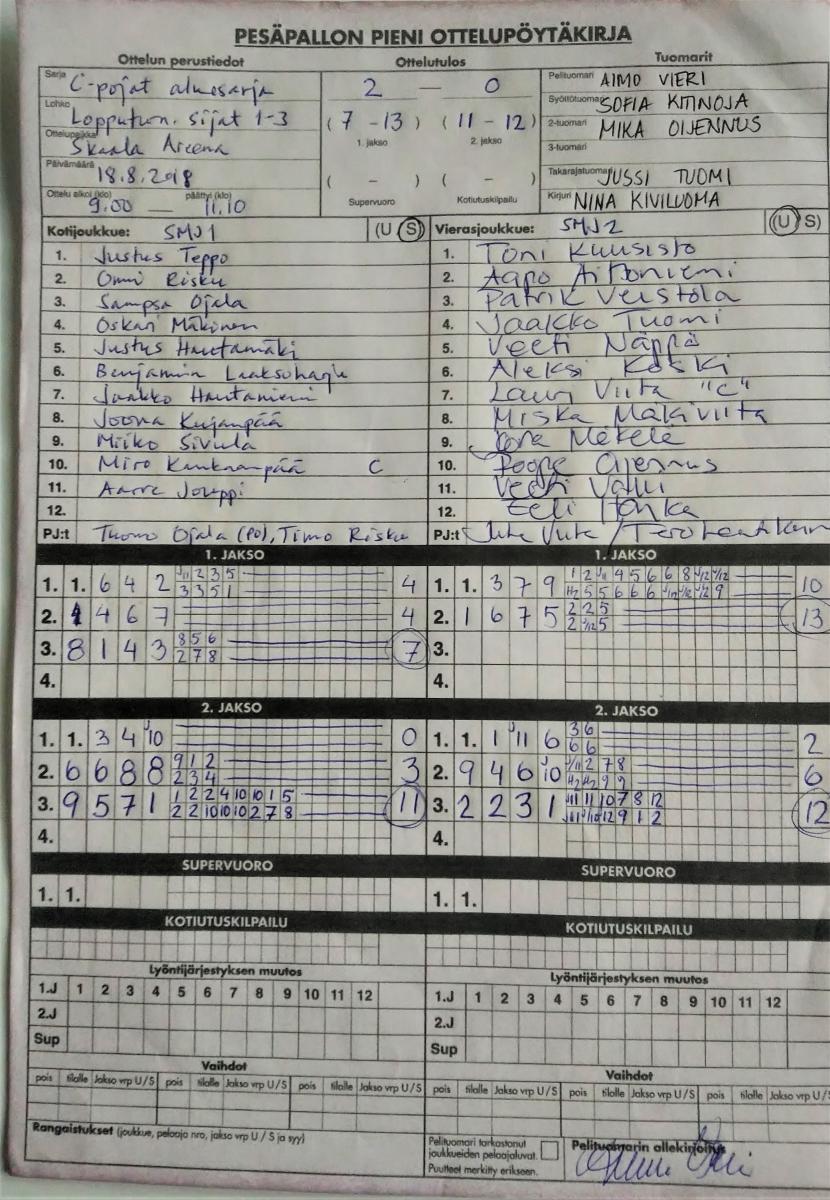 PESÄPALLON PIENI OTTELUPÖYTÄKIRJA
Ottelun perustiedot Ottelutulos Tuomarit
Sarja C-pojat aluesarja 2 — 0 Pelituomari AIMO VIERI
Lohko Lopputurn. sijat 1-3 (7 - 13) (11 - 12) Syöttötuomari SOFIA KITINOJA
1. jakso 2. jakso 2-tuomari MIKA OIJENNUS
Ottelupaikka Skaala Areena 3-tuomari
Päivämäärä 18.8.2018 ( - ) ( - ) Takarajatuomari JUSSI TUOMI
Ottelu alkoi (klo) päättyi (klo) Supervuoro Kotiutuskilpailu Kirjuri NINA KIVILUOMA
9.00 — 11.10
Kotijoukkue: SMJ1 (U S) Vierasjoukkue: SMJ2 (U S)
1. Justus Teppo 1. Toni Kuusisto
2. Onni Risku 2. Aapo
3. Sampsa Ojala 3. Patrik
4. Oskari Mäkinen 4. Jaakko Tuomi
5. Justus Hautamäki 5. Veeti Näppä
6. Benjamin Laaksoharju 6. Aleksi Koski
7. Jaakko Hautaniemi 7. Lauri Viita "C"
8. Joona Kujanpää 8. Miska Mäkiviita
9. Miiko Sivula 9. Mäkelä
10. Miro C 10. Roope Oijennus
11. Aarre Jouppi 11. Veeti
12. 12. Eeli Honka
PJ:t Tuomo Ojala (PO), Timo Risku PJ:t Juha Viita /
1. JAKSO 1. JAKSO
1. 1. 6 4 2 J11 2 3 5 4 1. 1. 3 7 9 1 2 J11 4 5 6 6 8 J12 J12 10
3 3 5 1 5 5 6 6 6 9
2. 1 4 6 7 4 2. 1 6 7 5 2 2 5 13
2 J12 5
3. 8 1 4 3 8 5 6 7 3.
2 7 8
4. 4.
2. JAKSO 2. JAKSO
1. 1. 3 4 J10 0 1. 1. 1 J11 6 3 6 2
6 6
2. 6 6 8 8 9 1 2 3 2. 9 4 6 J10 J11 2 7 8 6
2 3 4 9 9
3. 9 5 7 1 1 2 2 4 10 10 1 5 11 3. 2 2 3 1 J11 11 10 7 8 12 12
2 2 10 10 10 2 7 8 J11 J10 12 9 1 2
4. 4.
SUPERVUORO SUPERVUORO
1. 1. 1. 1.
KOTIUTUSKILPAILU KOTIUTUSKILPAILU
Lyöntijärjestyksen muutos Lyöntijärjestyksen muutos
1.J 1 2 3 4 5 6 7 8 9 10 11 12 1.J 1 2 3 4 5 6 7 8 9 10 11 12
2.J 2.J
Sup Sup
Vaihdot Vaihdot
pois tilalle Jakso vrp U / S pois tilalle Jakso vrp U / S pois tilalle pois tilalle Jakso vrp U / S pois tilalle Jakso vrp U / S pois tilalle Jakso vrp U /
Rangaistukset (joukkue, pelaaja nro, jakso vrp U / S ja syy)
Pelituomari tarkastanut joukkueiden pelaajaluvat. Puutteet merkitty erikseen. Pelituomarin allekirjoitus